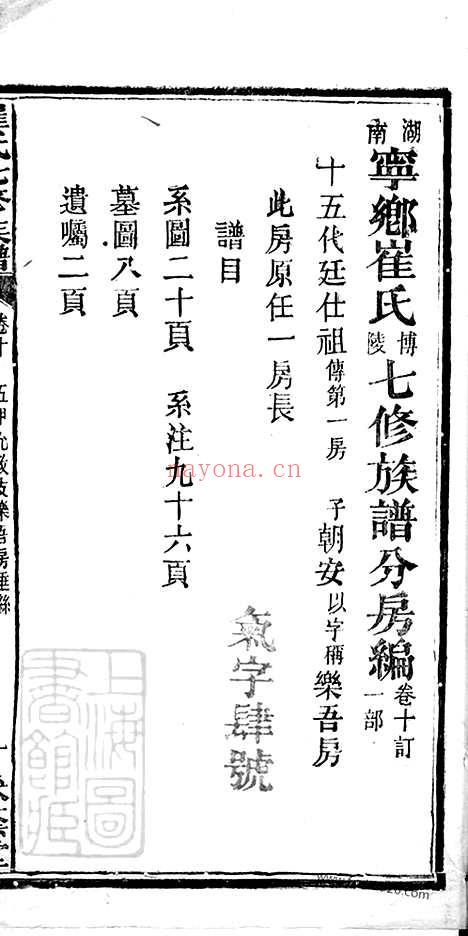 湖南寧鄉崔氏博陵七修族譜分房編卷十訂一部
十五代廷仕祖傳第一房 子朝安以字稱樂吾房
此房原任一房長
譜目
系圖二十頁 系注九十六頁
墓圖八頁
遺囑二頁
氣字肆號
上海圖書館藏
nayona.cn
卷十